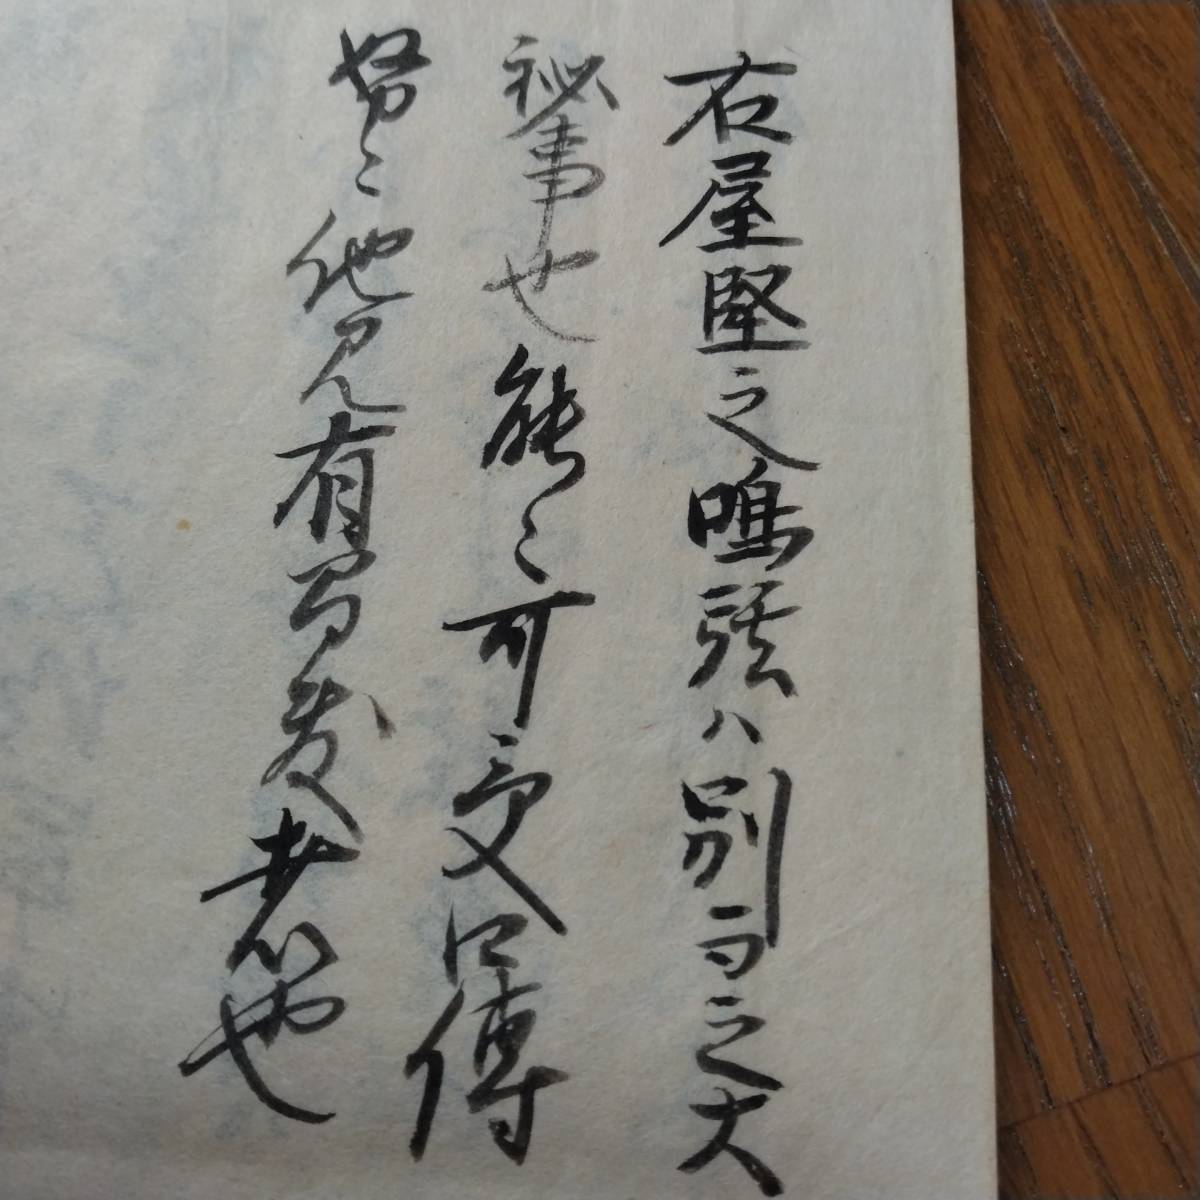 右屋堅之鳴弦ハ別而之大
秘事也能々可受口傳
努々他見有間敷者也